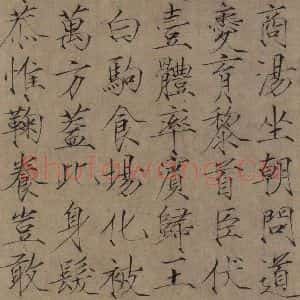 商湯坐朝問道
愛育黎首臣伏
壹體率賓歸王
白駒食場化被
萬方蓋此身髮
恭惟鞠養豈敢